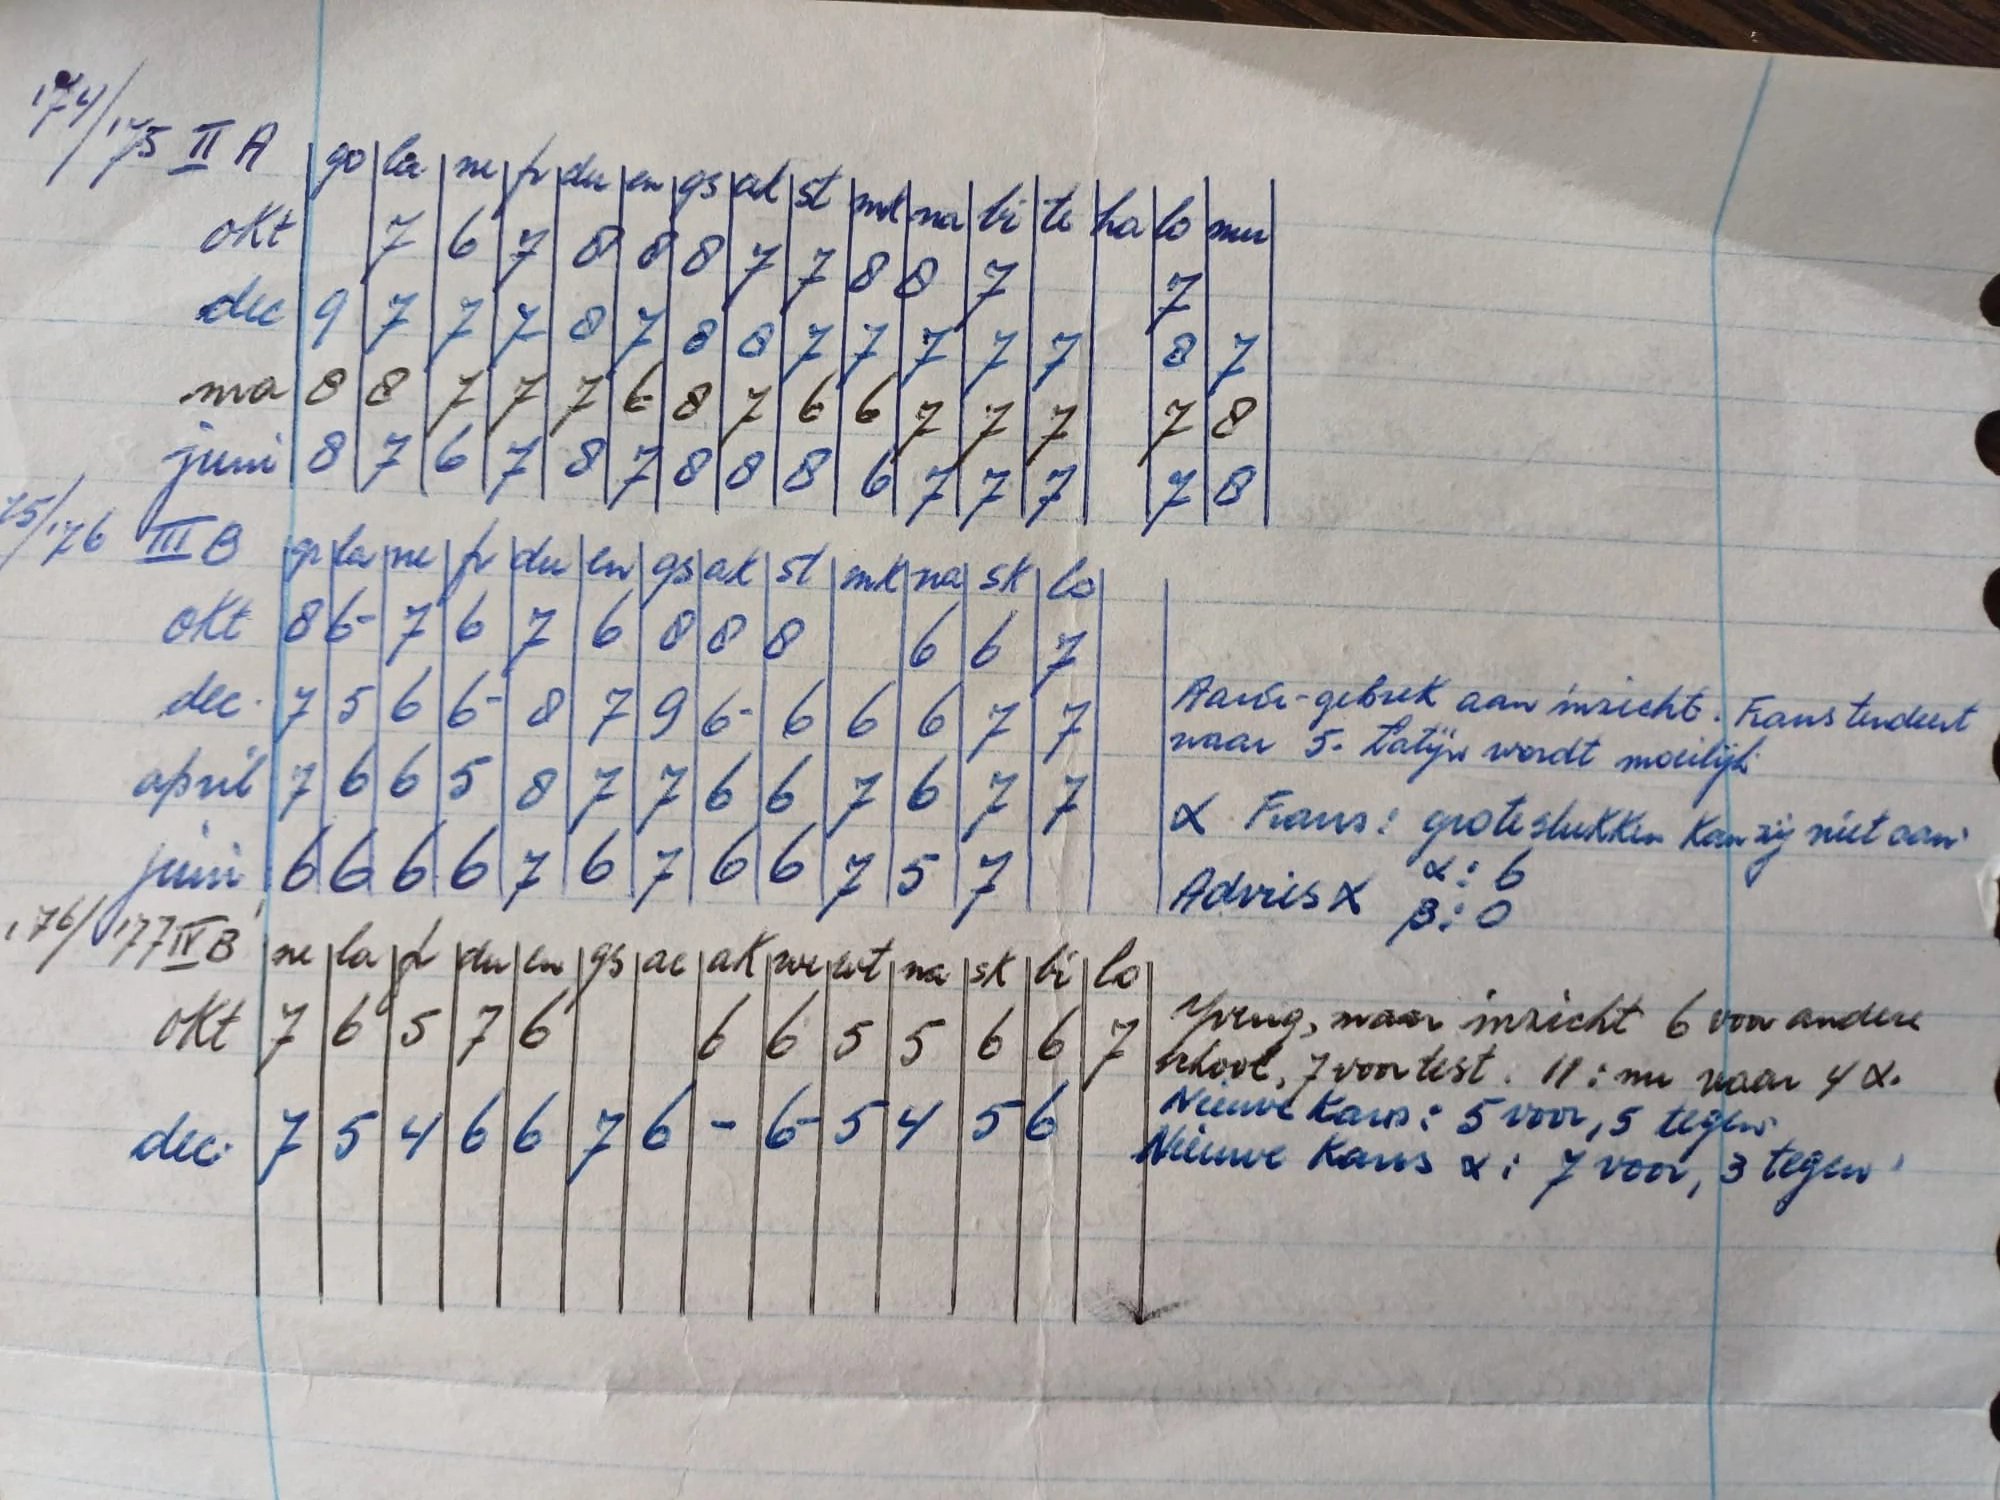 '74/'75 II A go la ne fr du en gs ak st mk na bi te ha lo mu
okt 7 6 7 8 8 8 7 7 8 8 7 7
dec 9 7 7 7 8 7 8 8 7 7 7 7 7 8 7
ma 8 8 7 7 7 6- 8 7 6 6 7 7 7 7 8
juni 8 7 6 7 8 7 8 8 8 6 7 7 7 7 8
75/'76 III B gr la ne fr du en gs ak st mk na sk lo
okt 8 6- 7 6 7 6 8 8 8 6 6 7
dec. 7 5 6 6- 8 7 9 6- 6 6 6 7 7 Aardr-gebrek aan inzicht. Frans tendeert
naar 5. Latijn wordt moeilijk
april 7 6 6 5 8 7 7 6 6 7 6 7 7 α Frans: grote stukken kan zij niet aan.
juni 6 6 6 6 7 6 7 6 6 7 5 7 Advies α α: 6
β: 0
'76/'77 IV B ne la fr du en gs ae ak we wt na sk bi lo
okt 7 6 5 7 6 6 6 5 5 6 6 7 maar inzicht 6 voor andere
school, 7 voor test. 11: nu naar 4 α.
Nieuwe Kans: 5 voor, 5 tegen.
dec. 7 5 4 6 6 7 6 - 6- 5 4 5 6 Nieuwe Kans α: 7 voor, 3 tegen